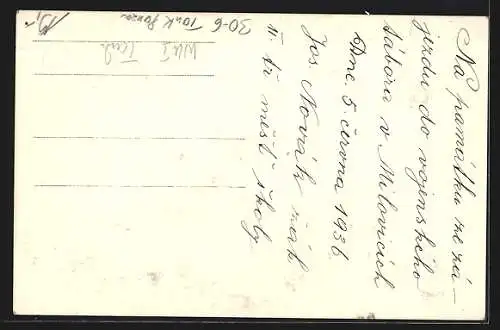 Na památku ze zá-
jezdu do vojenského
tábora v Milovicích
dne 5. června 1936
Jos. Novák žák
II tř měšť školy
30-6 Tank
WW I Tank